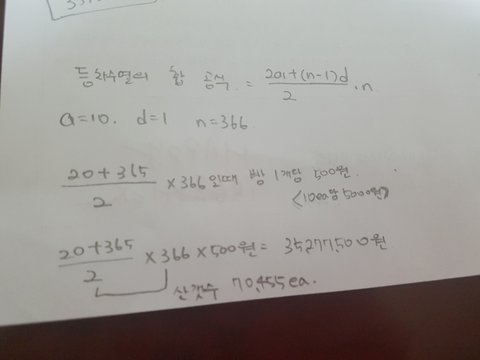 등차수열의 합 공식 = 2a+(n-1)d / 2 · n
a=10. d=1 n=366
20+365 / 2 ×366 일때 빵 1개당 500원.
<10ea당 5000원>
20+365 / 2 ×366×500원= 35277500원
산갯수 70,455ea.